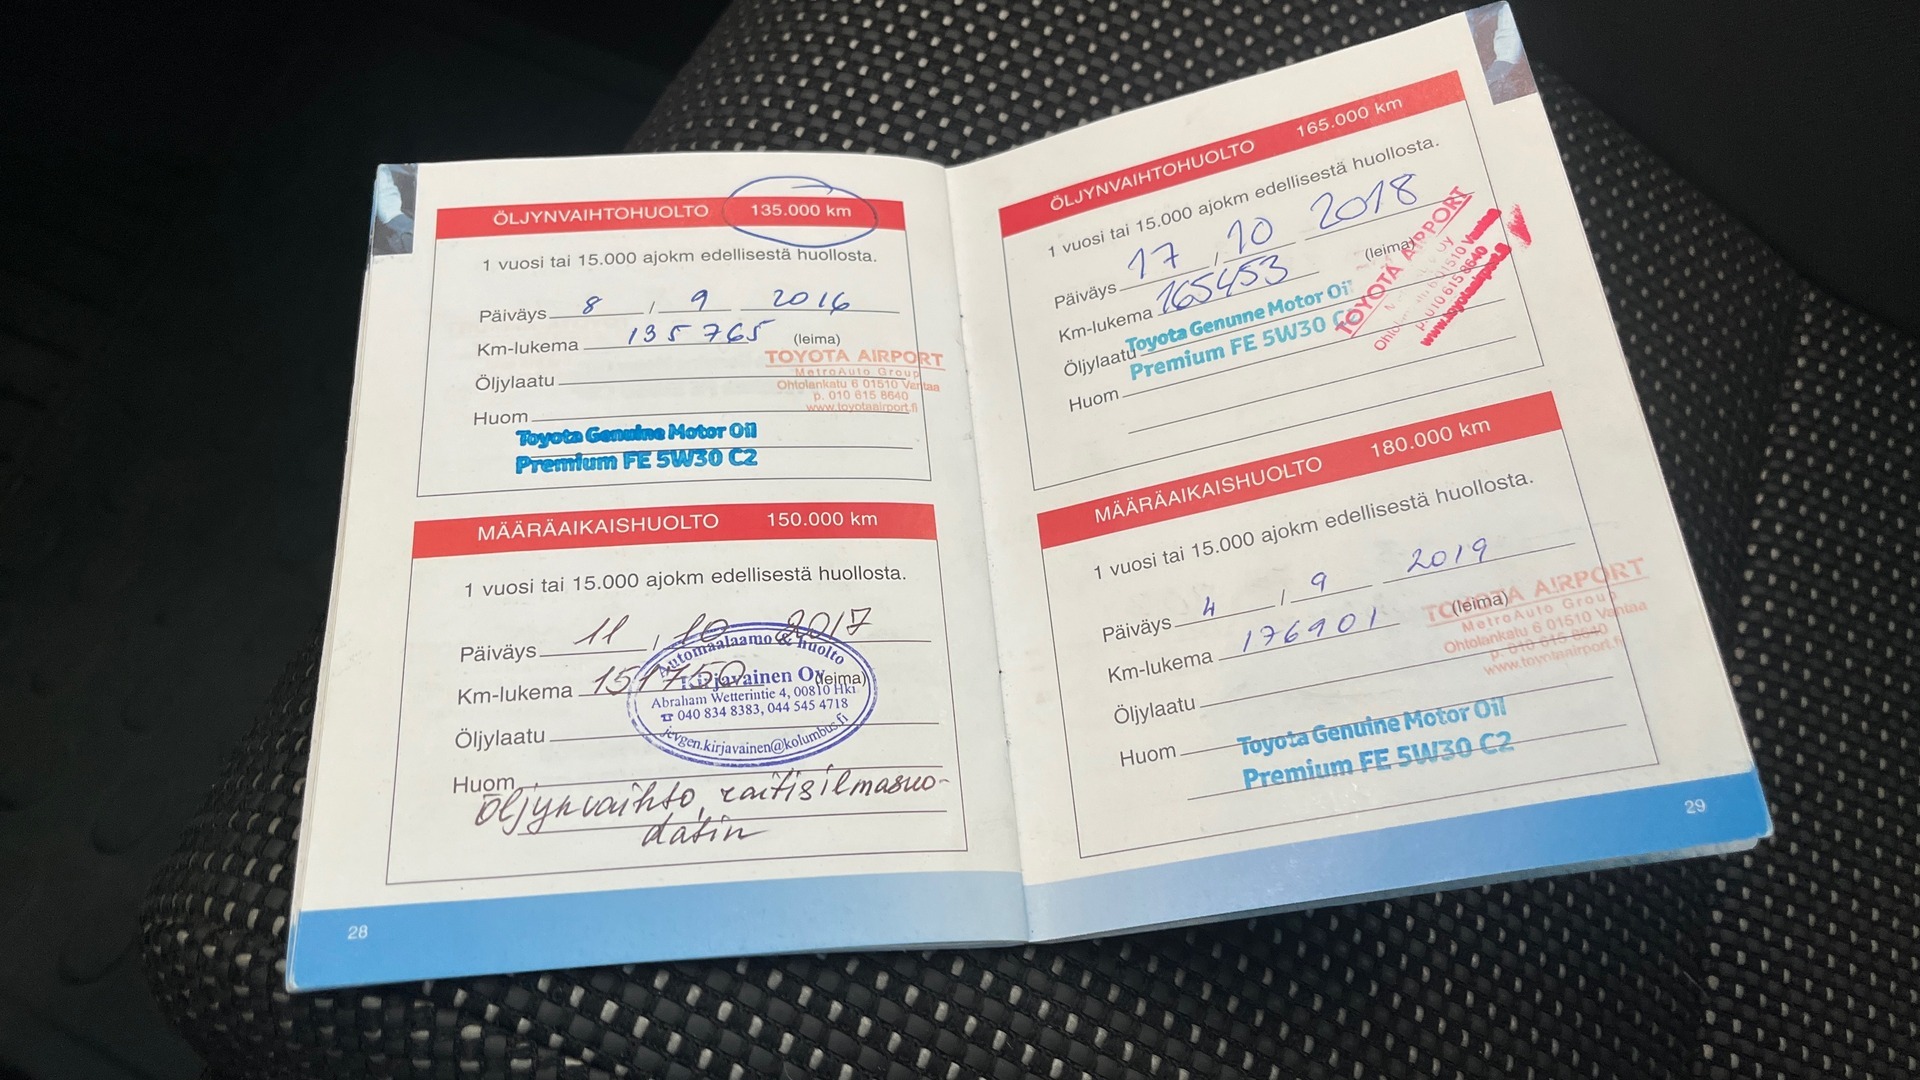 ÖLJYNVAIHTOHUOLTO 135.000 km
1 vuosi tai 15.000 ajokm edellisestä huollosta.
Päiväys 8 / 9 2016
Km-lukema 135765
(leima)
TOYOTA AIRPORT
MetroAuto Group
Ohtolankatu 6 01510 Vantaa
p. 010 615 8640
www.toyotaairport.fi
Öljylaatu
Huom
Toyota Genuine Motor Oil
Premium FE 5W30 C2
MÄÄRÄAIKAISHUOLTO 150.000 km
1 vuosi tai 15.000 ajokm edellisestä huollosta.
Päiväys 11 / 10 2017
Km-lukema 151750
(leima)
Automaalaamo & huolto
Kirjavainen Oy
Abraham Wetterintie 4, 00810 Hki
☎ 040 834 8383, 044 545 4718
jevgen.kirjavainen@kolumbus.fi
Öljylaatu
Huom
öljynvaihto, raitisilmasuo-
datin
28
ÖLJYNVAIHTOHUOLTO 165.000 km
1 vuosi tai 15.000 ajokm edellisestä huollosta.
Päiväys 17 / 10 2018
Km-lukema 165453
(leima)
TOYOTA AIRPORT
Oy
01510 Vantaa
p. 010 615 8640
www.toyotaairport.fi
Öljylaatu
Toyota Genuine Motor Oil
Premium FE 5W30 C2
Huom
MÄÄRÄAIKAISHUOLTO 180.000 km
1 vuosi tai 15.000 ajokm edellisestä huollosta.
Päiväys 4 / 9 2019
Km-lukema 176901
(leima)
TOYOTA AIRPORT
MetroAuto Group
Ohtolankatu 6 01510 Vantaa
p. 010 615 8640
www.toyotaairport.fi
Öljylaatu
Huom
Toyota Genuine Motor Oil
Premium FE 5W30 C2
29